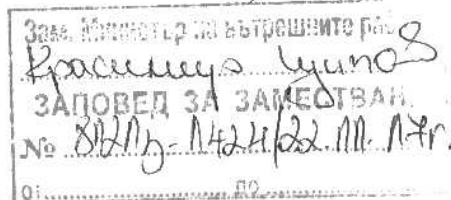 Зам. Министър на вътрешните раб
Красимир Ципов
ЗАПОВЕД ЗА ЗАМЕСТВАН
№ 8121з-1424/22.11.17г.
от.......... до..........